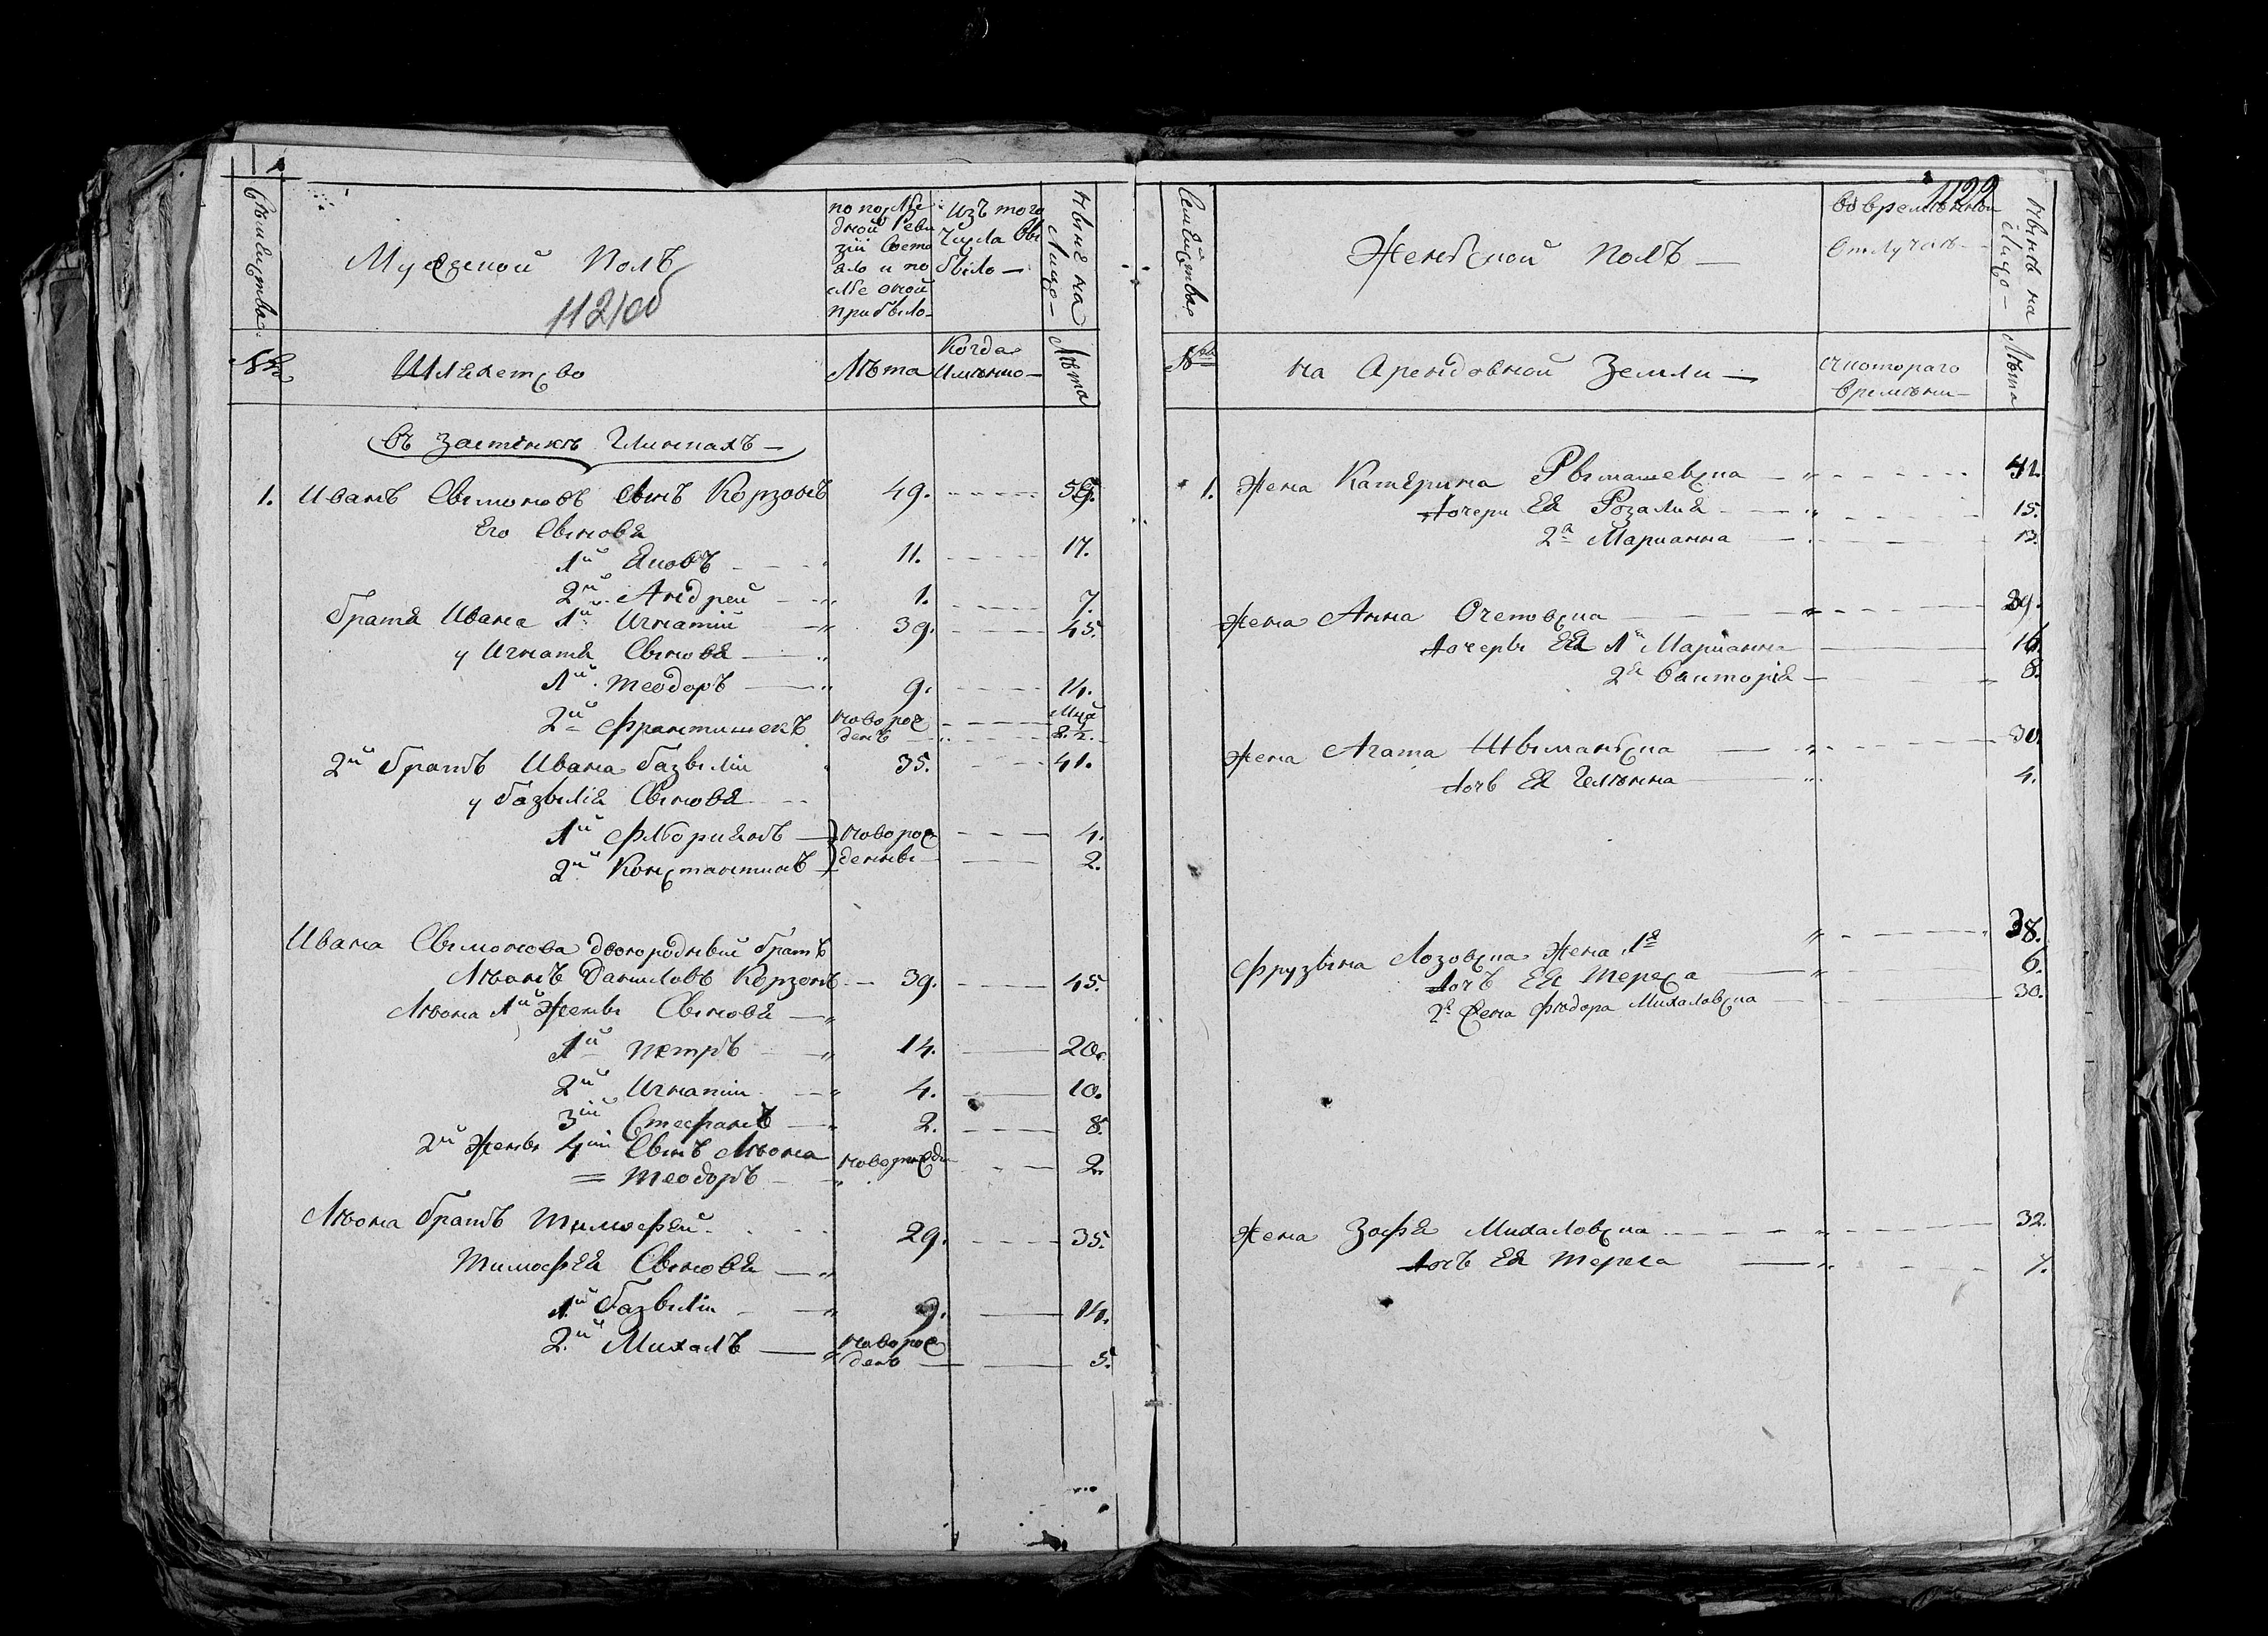 Семейства
Мужеской Полъ
112/об
по послѣ
дной Реви
зіи Состо
яло и по
слѣ оной
прибыло
Изъ того
числа Вы
было
Нынѣ на
Лицо
№
Шляхетство
Лѣта
Когда
Имянно
Лѣта
въ Застѣнкѣ Глинкахъ
1. Иванъ Сымоновъ Сынъ Корзонъ 49.
Его Сыновя
1й Яковъ 11. 17.
2й Андрей 1. 7.
братя Ивана 1й Игнатій 39. 45.
у Игнатя Сыновя
1й Теодоръ 9. 14.
2й Франтишекъ новорож
денъ
2й братъ Ивана Базылій 35. 41.
у Базылія Сыновя
1й Флоріянъ новорож 4.
2й Константинъ денны 2.
Ивана Сымонова двоюродный братъ
Лѣонъ Даниловъ Корзонъ 39. 45.
Лѣона 1й Жены Сыновя
1й Петръ 14. 20.
2й Игнатій 4. 10.
3ій Стефанъ 2. 8.
2й Жены 4ый Сынъ Лѣона новорожде 2.
= Теодоръ
Лѣона братъ Тимофей 29. 35.
Тимофея Сыновя
1й Базылій 9. 14.
2й Михалъ новорож
денъ 5.
1122
Семейства
Женской полъ
во временной
Отлучкѣ
Нынѣ на
Лицо
№
на Арендовной Земли
съ котораго
времѣни
Лѣта
1. Жена Катерина Рымашевска
Дочери Ея Розалія 15.
2я Марианна 13.
Жена Анна
Дочеры Ея 1я Марианна
2я Викторія 8.
Жена Агата Шыманска 30.
Дочь Ея Гелѣна 4.
Фрузына Лозовска Жена 1я 38.
Дочь Ея Тереса 6.
2я Жена Фѣдора Михаловска 30.
Жена Зофя Михаловска 32.
Дочь Ея Тереса 7.